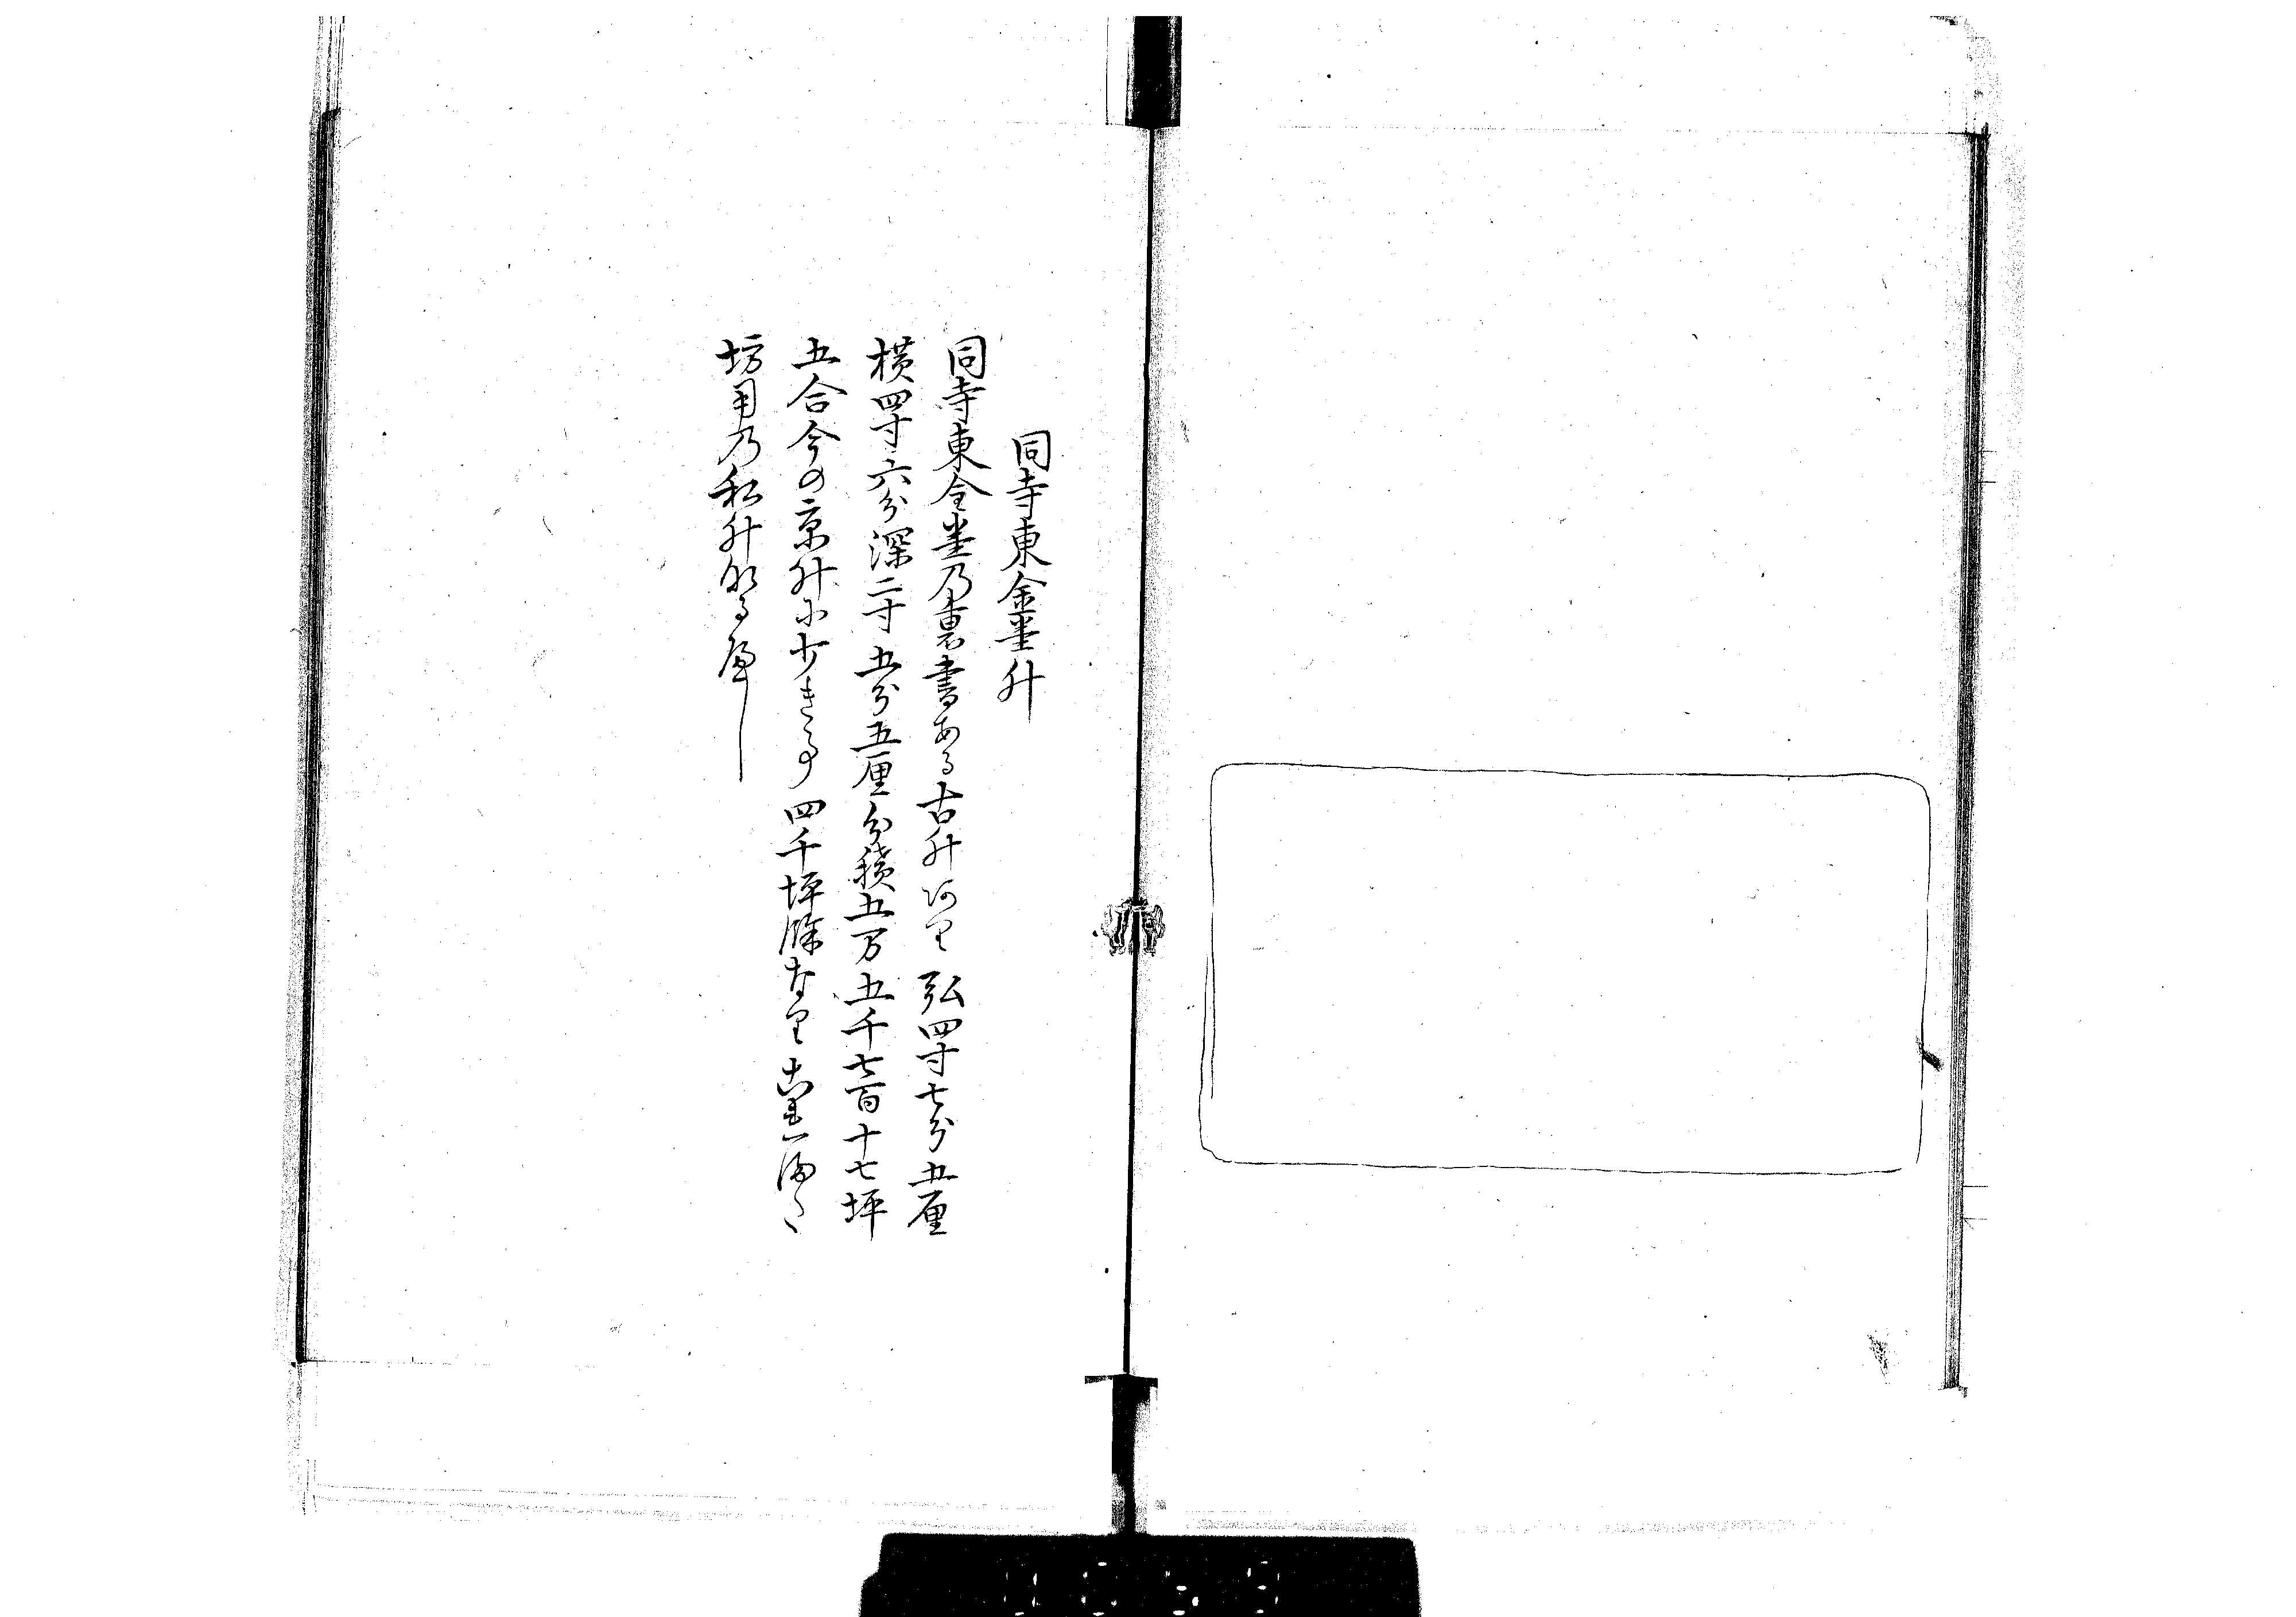 同寺東金堂升
同寺東金堂乃裏書ある古升阿り弘四寸七分五厘
横四寸六分深二寸五分五厘分積五万五千七百十七坪
五合今の京升に少き事四千坪餘なりこれ一
坊用乃私升なるへし